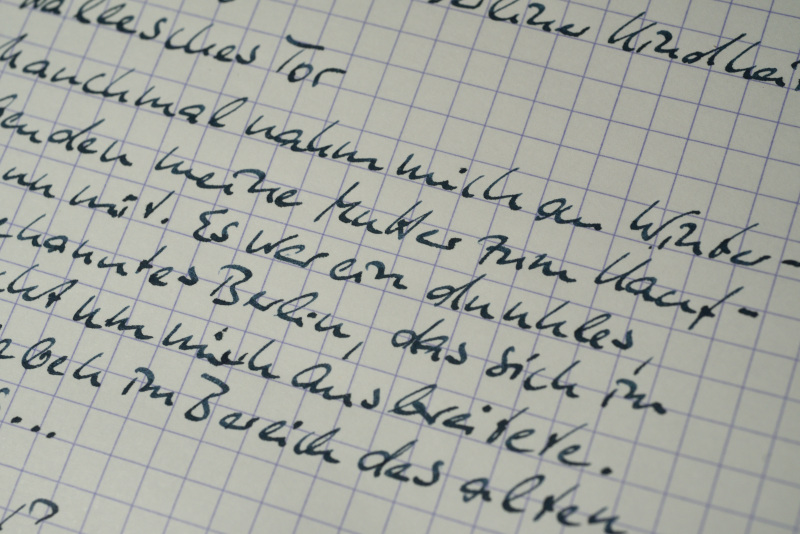 rliner Kindheit
Hallesches Tor
Manchmal nahm mich an Winter-
benden meine Mutter zum Kauf-
nn mit. Es war ein dunkles,
ekanntes Berlin, das sich im
cht um mich ausbreitete.
eben im Bereich des alten
...